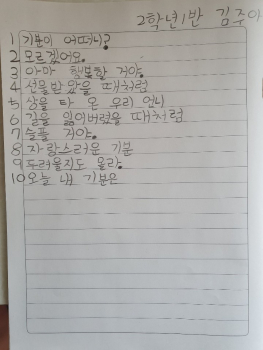 2학년1반 김주아
1 기분이 어떠니?
2 모르겠어요.
3 아마 행복할 거야.
4 선물받았을 때처럼
5 상을 타 온 우리 언니
6 길을 잃어버렸을 때처럼
7 슬플 거야.
8 자랑스러운 기분
9 두려울지도 몰라.
10 오늘 내 기분은